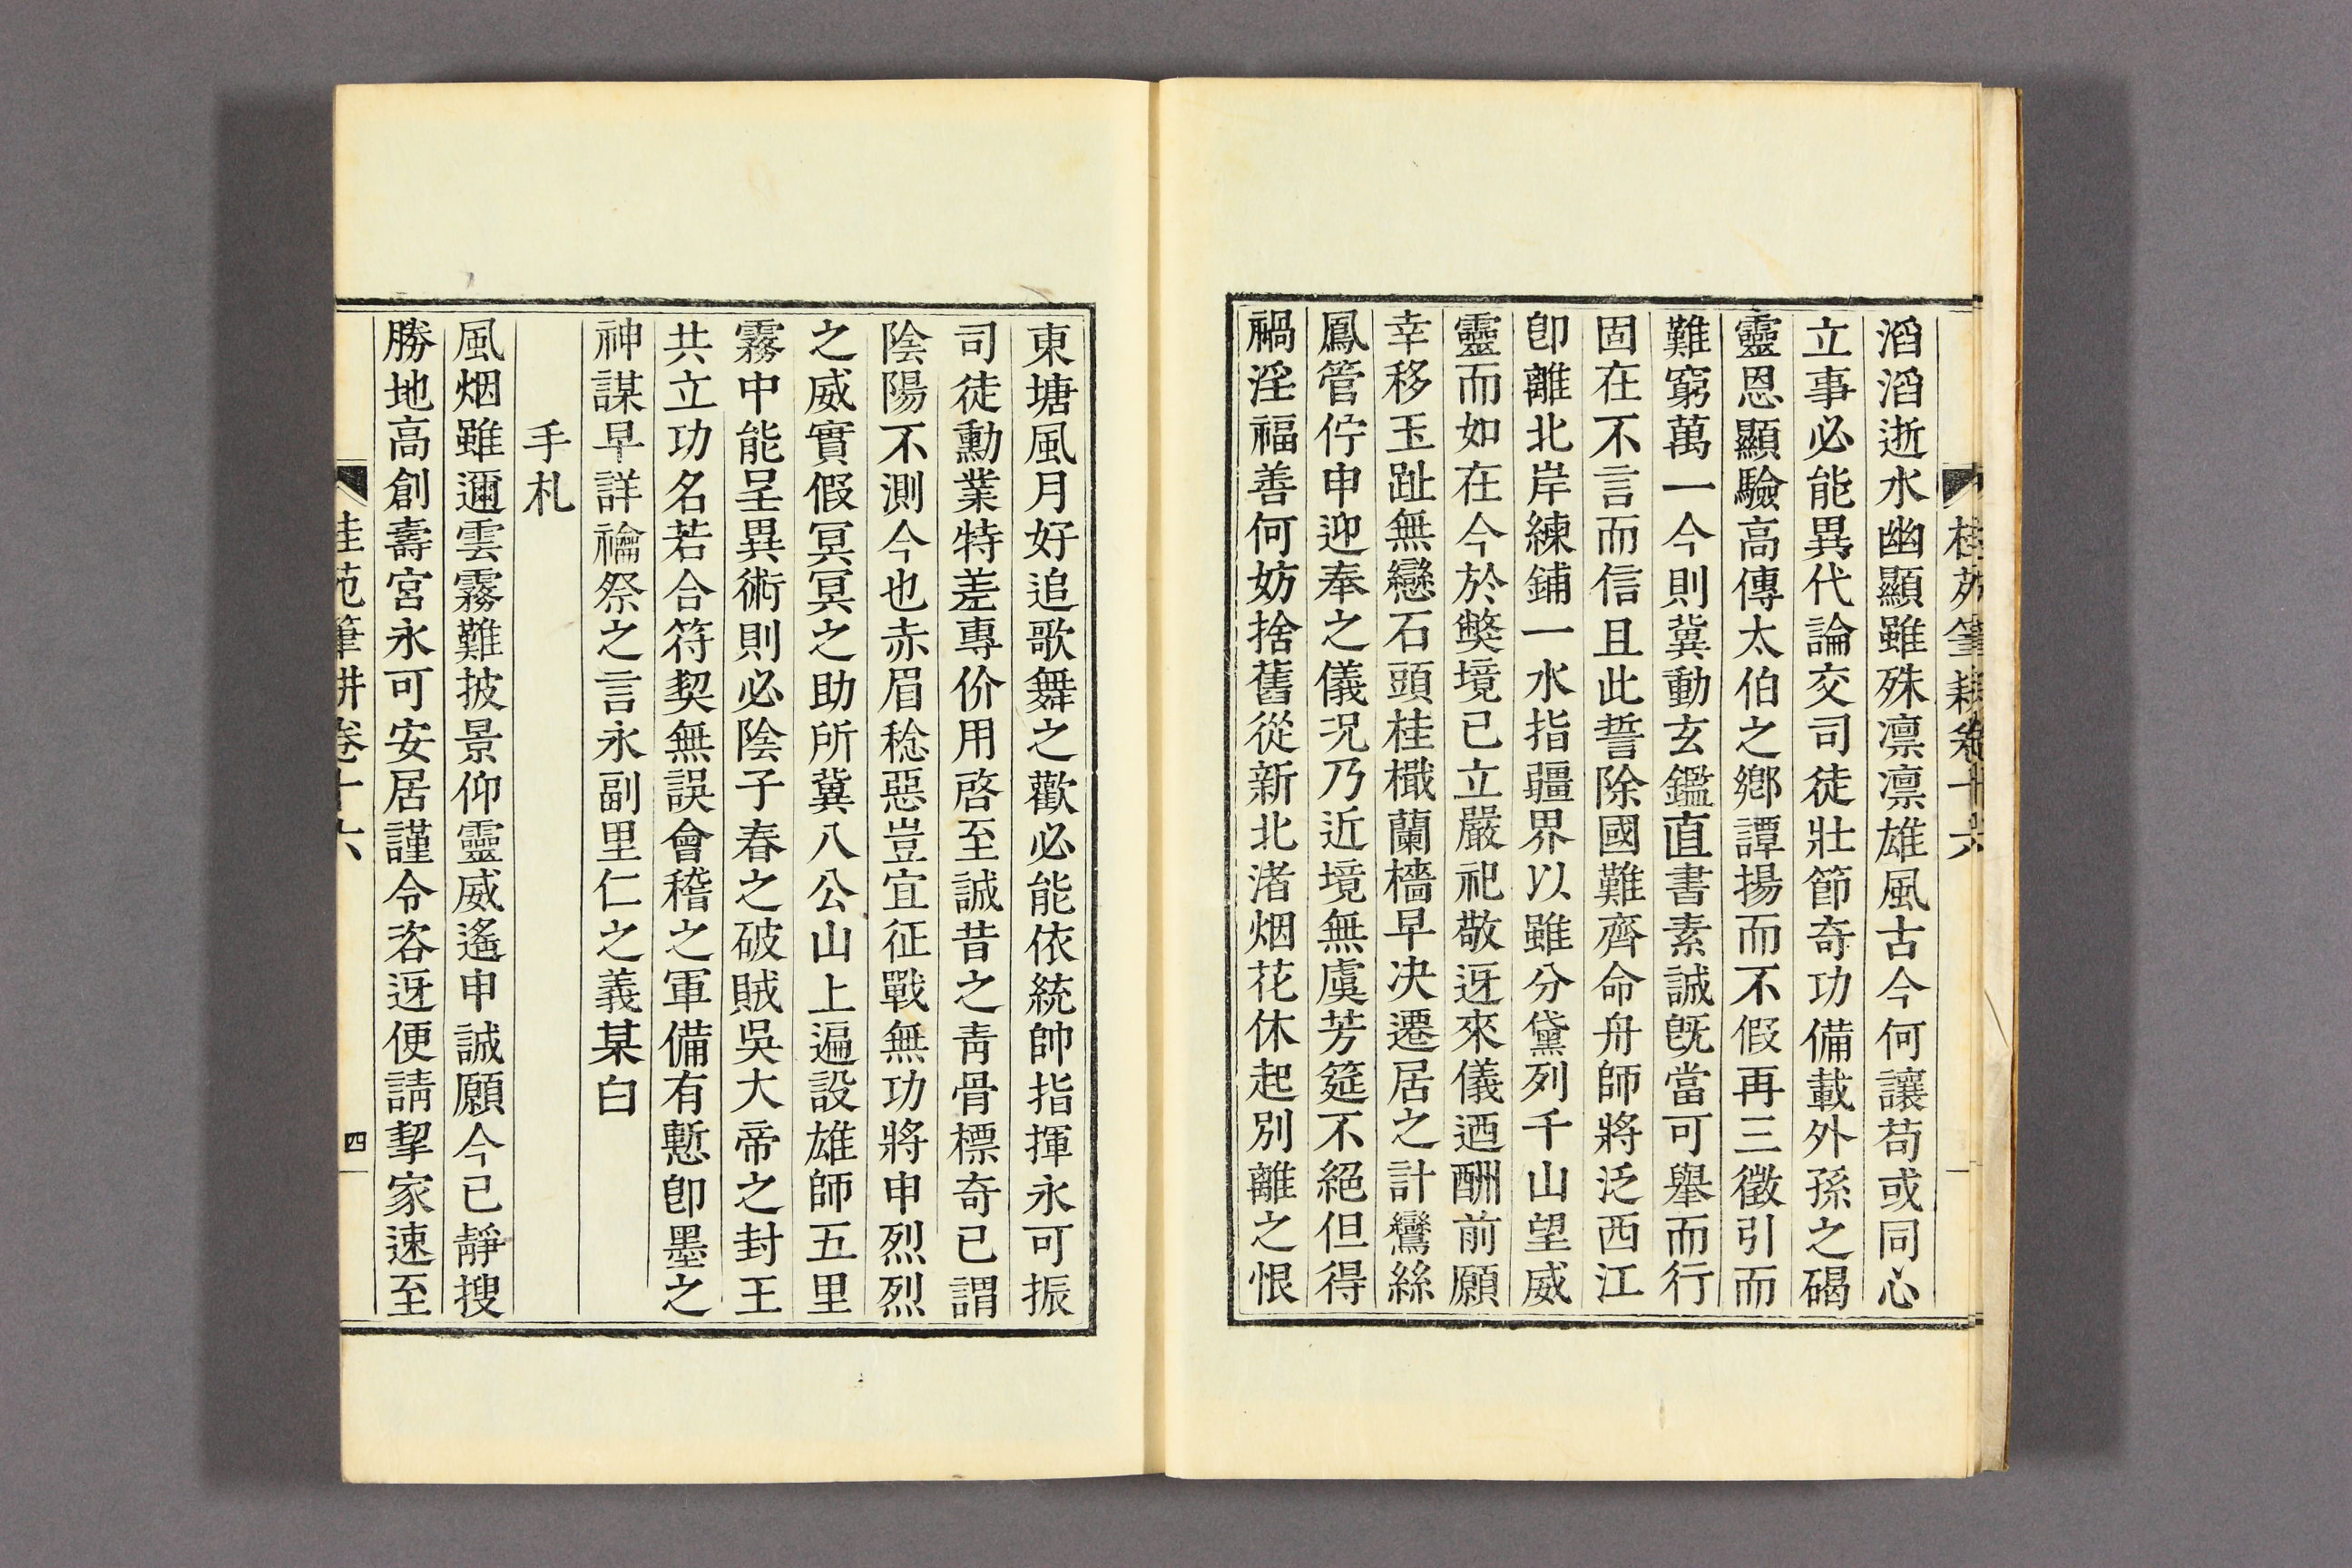 桂苑筆耕卷十六
滔滔逝水幽顯雖殊凛凛雄風古今何讓苟或同心
立事必能異代論交司徒壯節奇功備載外孫之碣
靈恩顯驗高傳太伯之鄕譚揚而不假再三徵引而
難窮萬一今則冀動玄鑑直書素誠旣當可舉而行
固在不言而信且此誓除國難齊命舟師將泛西江
卽離北岸練鋪一水指疆界以雖分黛列千山望威
靈而如在今於獘境已立嚴祀敬迓來儀迺酬前願
幸移玉趾無戀石頭桂檝蘭檣早决遷居之計鸞絲
鳳管佇申迎奉之儀况乃近境無虞芳筵不絕但得
禍淫福善何妨捨舊從新北渚烟花休起別離之恨
東塘風月好追歌舞之歡必能依統帥指揮永可振
司徒勳業特差專价用啓至誠昔之靑骨標奇已謂
陰陽不測今也赤眉稔惡豈宜征戰無功將申烈烈
之威實假冥冥之助所冀八公山上遍設雄師五里
霧中能呈異術則必陰子春之破賊吳大帝之封王
共立功名若合符契無誤會稽之軍備有慙卽墨之
神謀早詳禴祭之言永副里仁之義某白
手札
風烟雖邇雲霧難披景仰靈威遙申誠願今已靜搜
勝地高創壽宮永可安居謹令咨迓便請挈家速至
桂苑筆耕卷十六
四